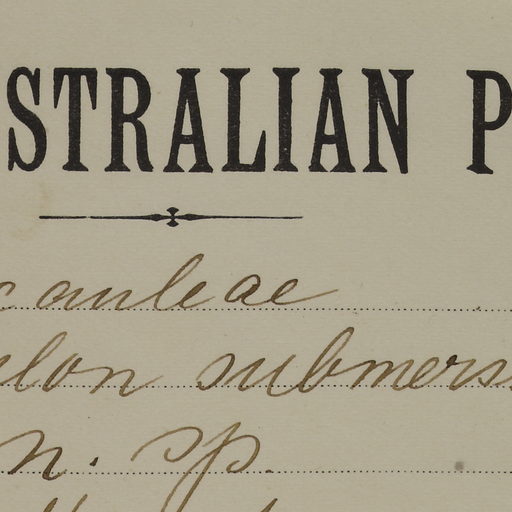 STRALIAN P
cauleae
elon submers
n. sp.